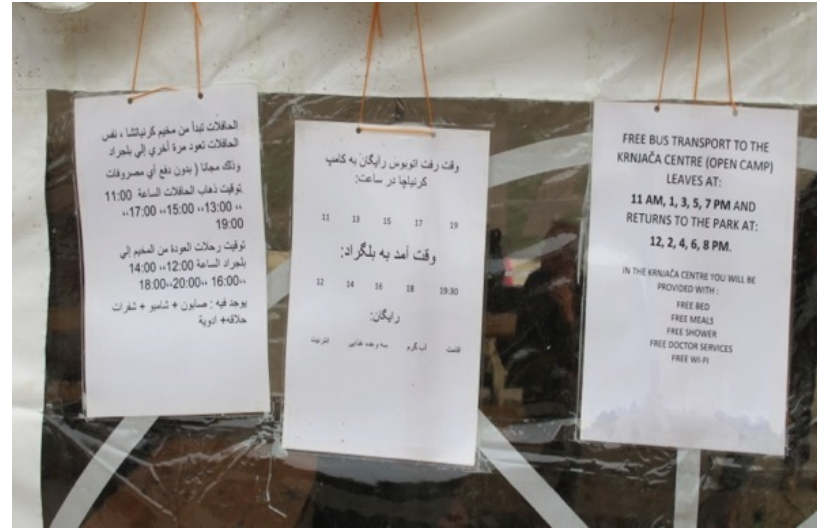 الحافلات تبدأ من مخيم كرنياتشا ، نفس
الحافلات تعود مرة أخري إلي بلجراد
وذلك مجانا ( بدون دفع أي مصروفات
توقيت ذهاب الحافلات الساعة 11:00
،، 13:00،، 15:00،، 17:00،،
19:00
توقيت رحلات العودة من المخيم إلي
بلجراد الساعة 12:00،، 14:00
،،16:00 ،،20:00،، 18:00
يوجد فيه : صابون + شامبو + شفرات
حلاقه+ ادوية
وقت رفت اتوبوس رايگان به کامپ
کرنیاچا در ساعت:
11 13 15 17 19
وقت آمد به بلگراد:
12 14 16 18 19:30
رایگان:
اقامت آب گرم سه وعده غذایی انترنیت
FREE BUS TRANSPORT TO THE
KRNJAČA CENTRE (OPEN CAMP)
LEAVES AT:
11 AM, 1, 3, 5, 7 PM AND
RETURNS TO THE PARK AT:
12, 2, 4, 6, 8 PM.
IN THE KRNJAČA CENTRE YOU WILL BE
PROVIDED WITH :
FREE BED
FREE MEALS
FREE SHOWER
FREE DOCTOR SERVICES
FREE WI-FI